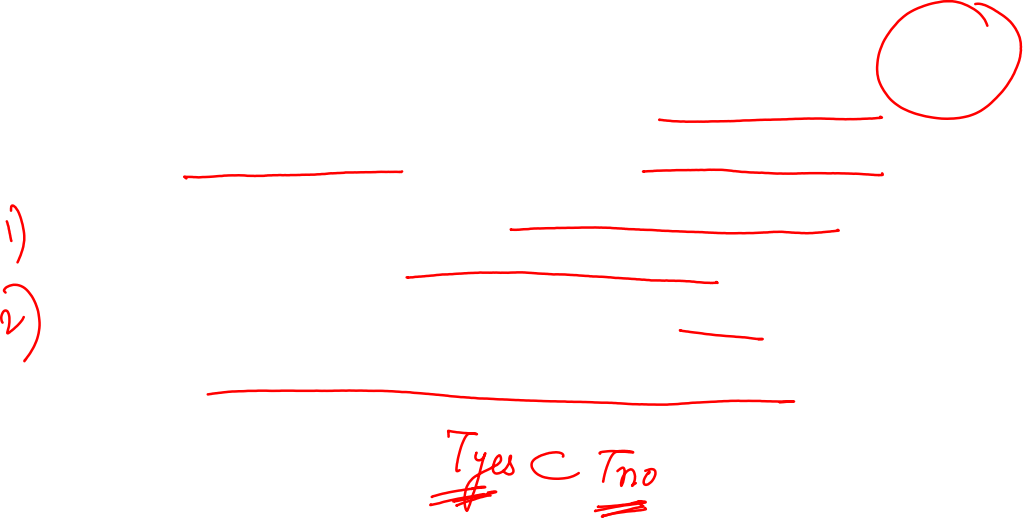 1)
2)
Tyes ⊂ Tno